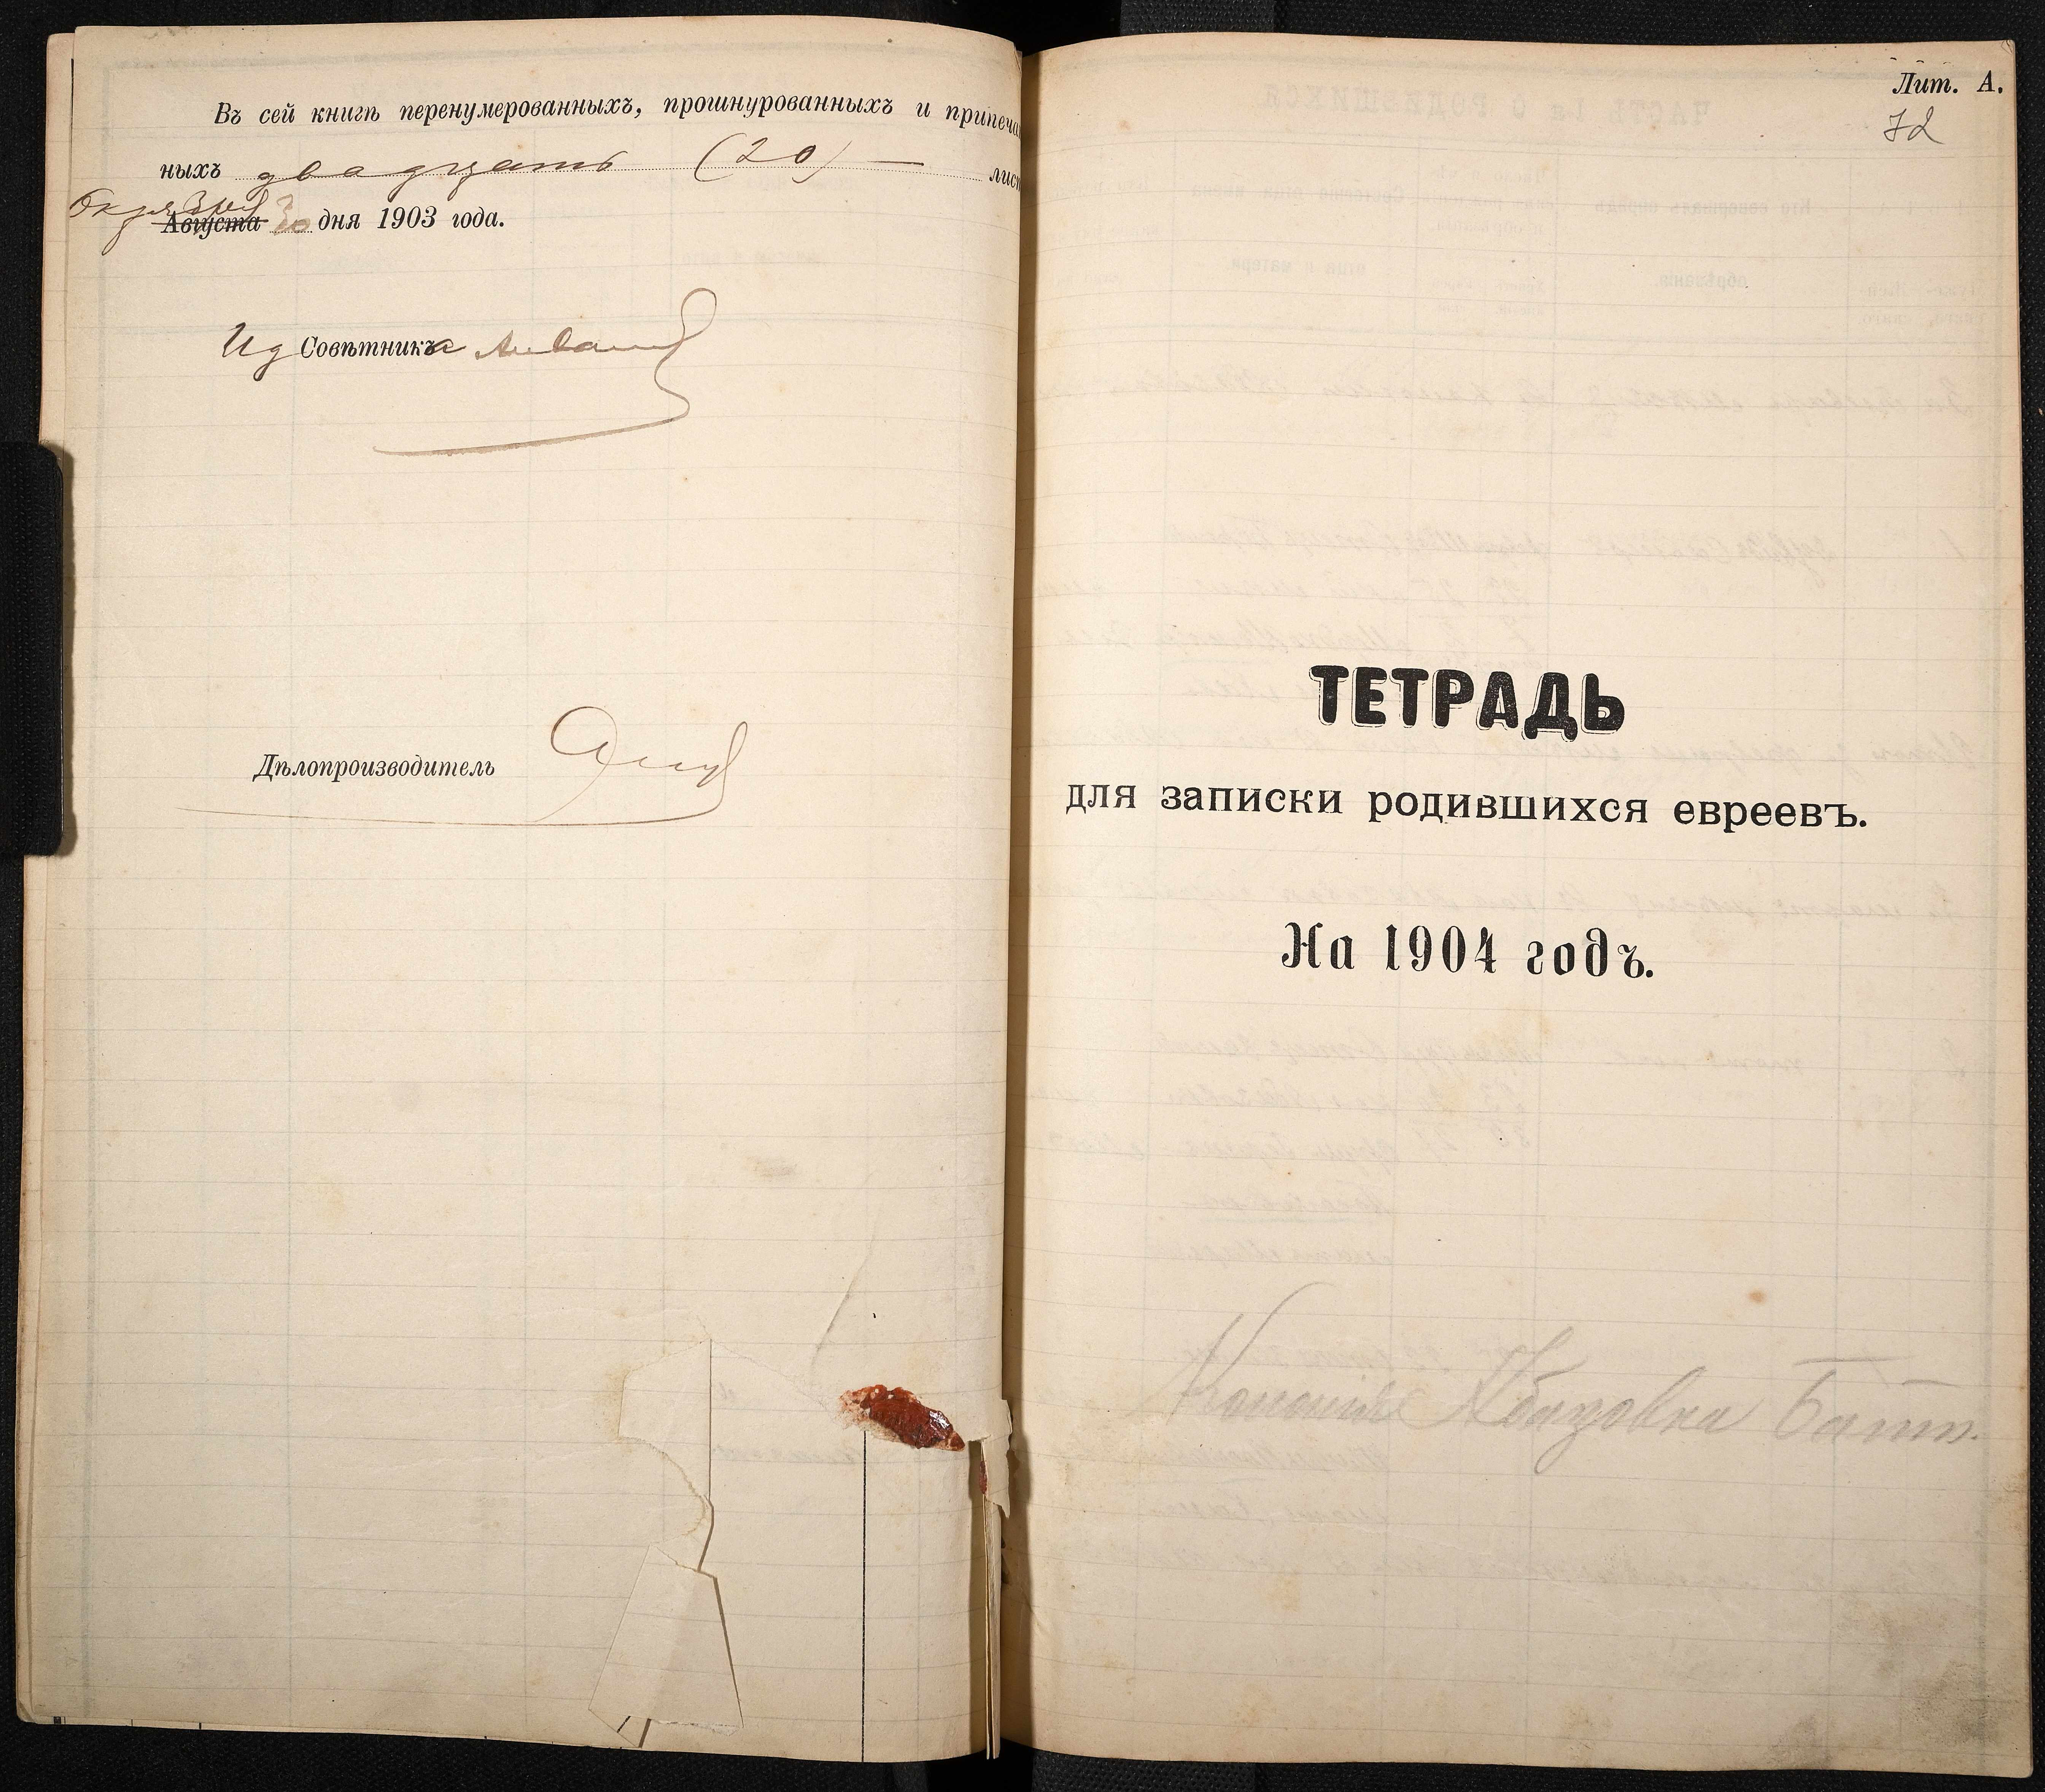 Въ сей книгѣ перенумерованныхъ, прошнурованныхъ и припеча
ныхъ двадцать (20) — лист
Октября Августа 30 дня 1903 года.
Ид Совѣтника
Дѣлопроизводитель
Лит. А.
72
ТЕТРАДЬ
для записки родившихся евреевъ.
На 1904 годъ.